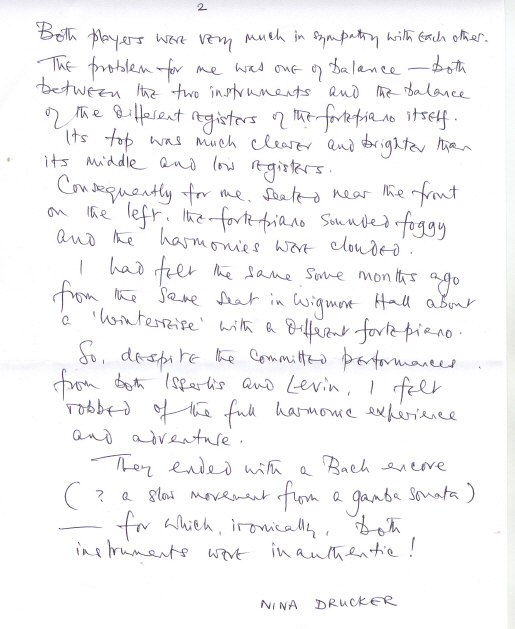 2
Both players were very much in sympathy with each other.
The problem for me was one of balance – both
between the two instruments and the balance
of the different registers of the fortepiano itself.
Its top was much clearer and brighter than
its middle and low registers.
Consequently for me, seated near the front
on the left, the fortepiano sounded foggy
and the harmonies were clouded.
I had felt the same some months ago
from the same seat in Wigmore Hall about
a 'Winterreise' with a different fortepiano.
So, despite the committed performances
from both Isserlis and Levin, I felt
robbed of the full harmonic experience
and adventure.
They ended with a Bach encore
(? a slow movement from a gamba sonata)
— for which, ironically, both
instruments were inauthentic!
NINA DRUCKER